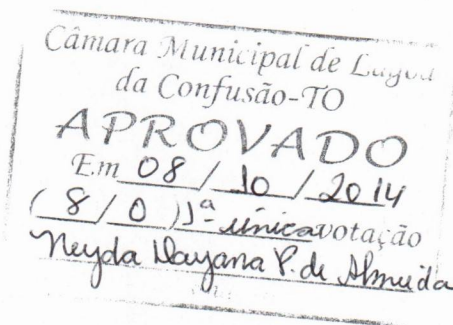 Câmara Municipal de Lagoa
da Confusão-TO
APROVADO
Em 08 / 10 / 2014
( 8 / 0 ) 1ª única votação
Neyda Dayana P. de Almeida